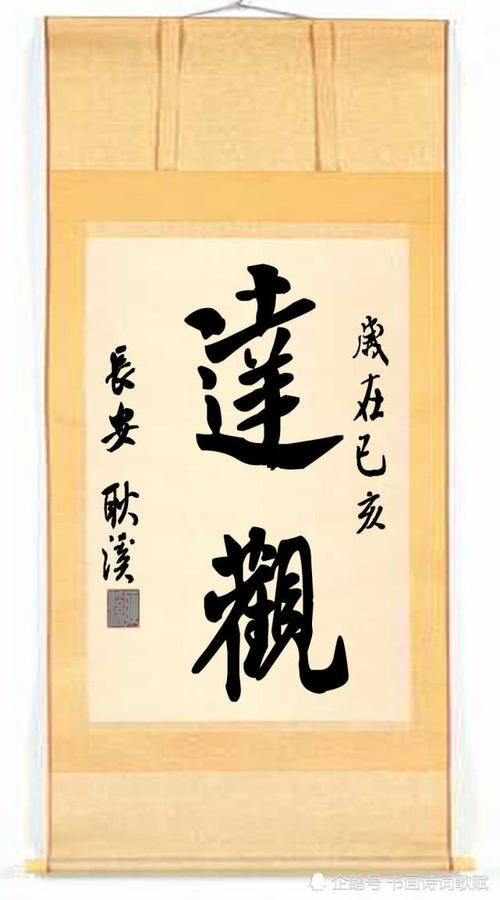 歲在己亥
達觀
長安 耿溪
企鹅号 书画诗词歌赋